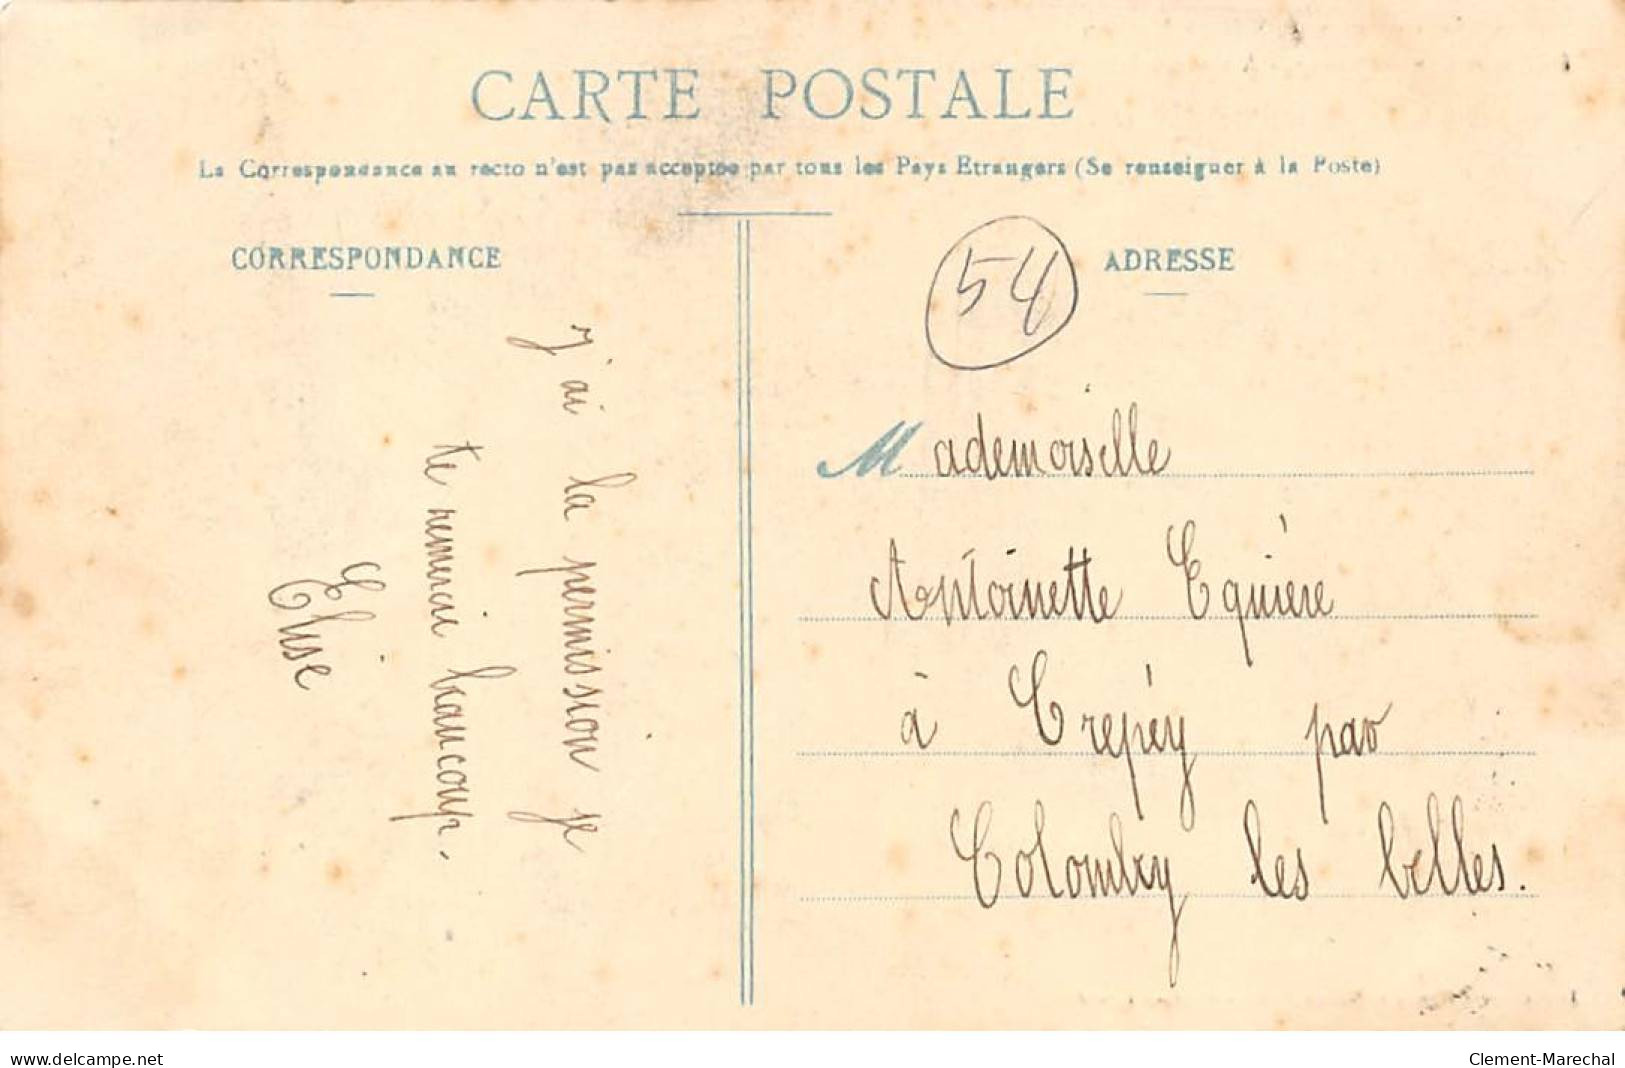 CARTE POSTALE
La Correspondance au recto n'est pas acceptée par tous les Pays Etrangers (Se renseigner à la Poste)
CORRESPONDANCE
J'ai la permission je
te remercie beaucoup.
Elise
54
ADRESSE
Mademoiselle
Antoinette Equiére
à Crepéy par
Colombey les belles.
www.delcampe.net
Clement-Marechal